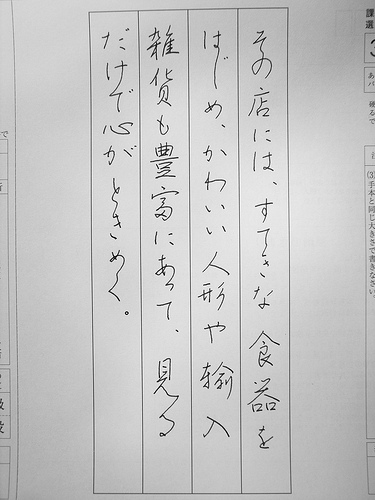 その店には、すてきな食器を
はじめ、かわいい人形や輸入
雑貨も豊富にあって、見る
だけで心がときめく。
課
(3)手本と同じ大きさで書きなさい。